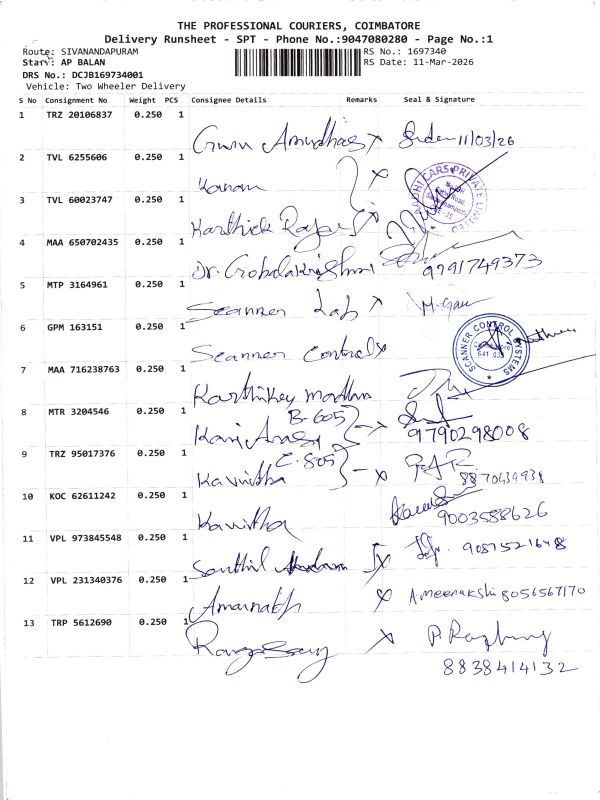 THE PROFESSIONAL COURIERS, COIMBATORE
Delivery Runsheet - SPT - Phone No.:9047080280 - Page No.:1
Route: SIVANANDAPURAM RS No.: 1697340
Staff: AP BALAN RS Date: 11-Mar-2026
DRS No.: DCJB169734001
Vehicle: Two Wheeler Delivery
S No Consignment No Weight PCS Consignee Details Remarks Seal & Signature
1 TRZ 20106837 0.250 1
11/03/26
2 TVL 6255606 0.250 1
Kanan
3 TVL 60023747 0.250 1
Karthick Raja
4 MAA 650702435 0.250 1
Dr. Gobalakrishnan 9791749373
5 MTP 3164961 0.250 1
Scanner Lab
6 GPM 163151 0.250 1
Scanner Control
SCANNER CONTROL SYSTEMS
641 035
7 MAA 716238763 0.250 1
8 MTR 3204546 0.250 1
B-605
9790298008
9 TRZ 95017376 0.250 1
C-805
Kavintha
10 KOC 62611242 0.250 1
Kavitha 9003588626
11 VPL 973845548 0.250 1
12 VPL 231340376 0.250 1
Amarnath A.meenakshi 8056567170
13 TRP 5612690 0.250 1
8838414132